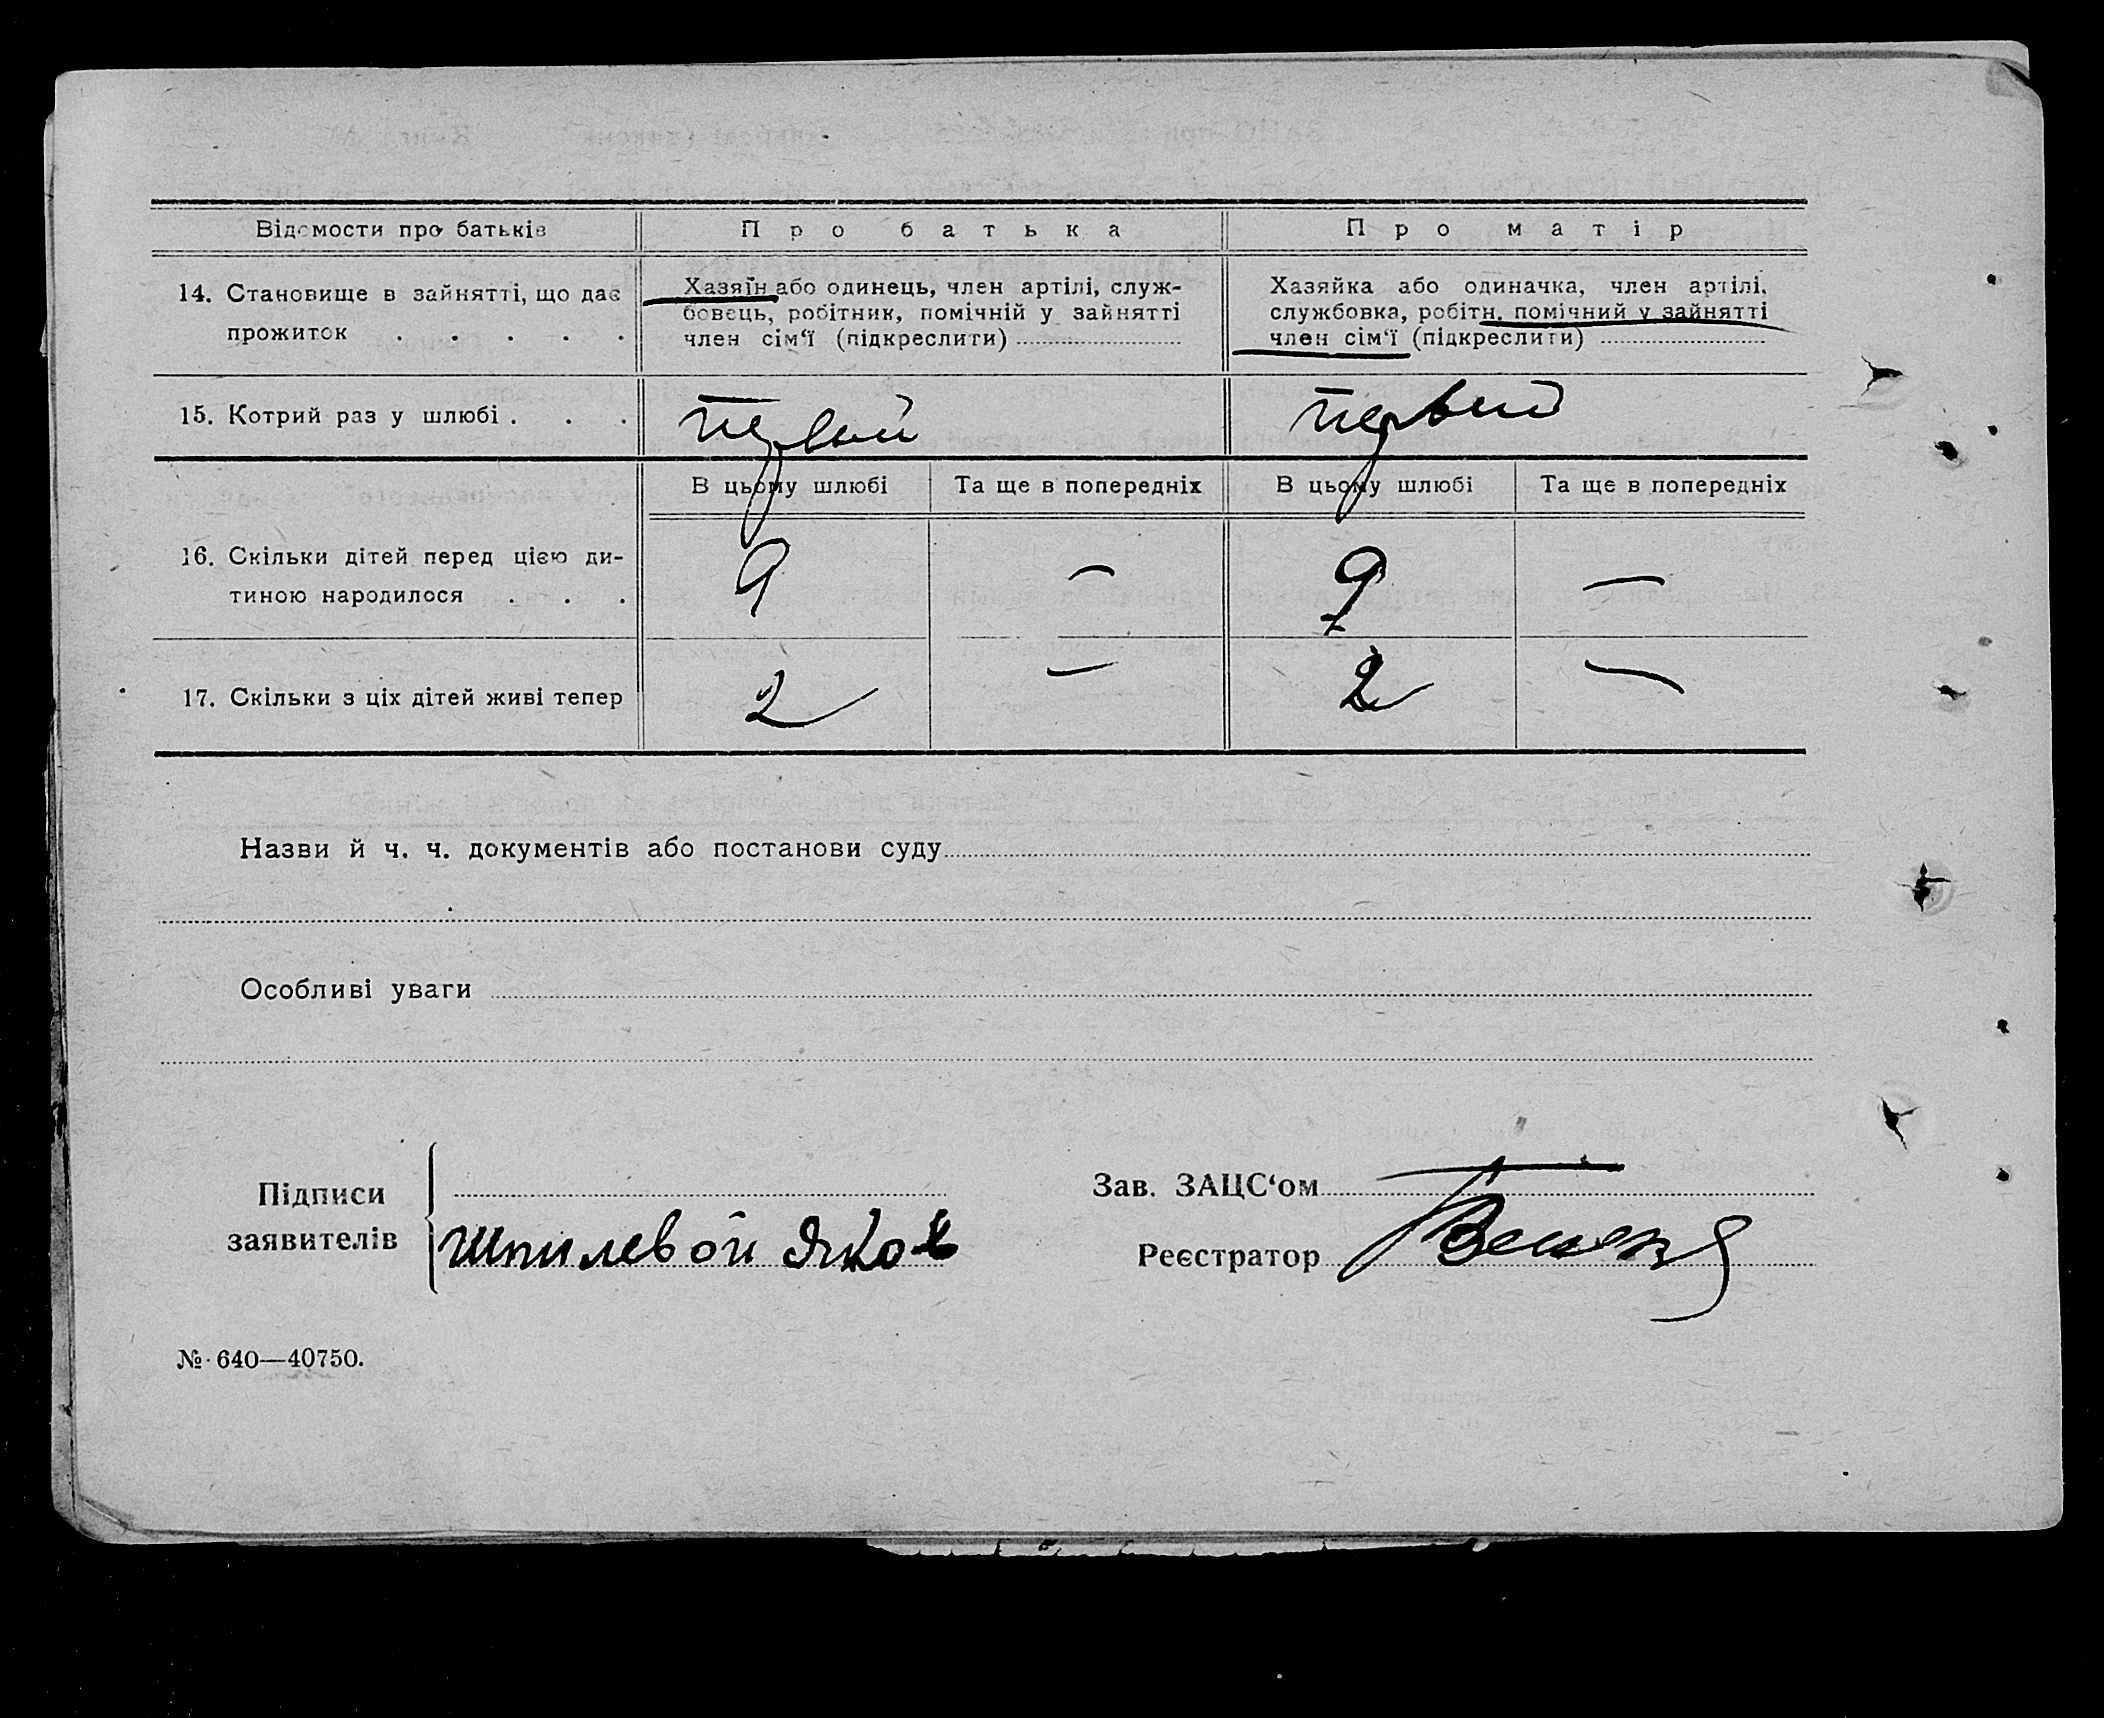 Відомости про батьків
Про батька
Про матір
14. Становище в зайнятті, що дає
прожиток . . . . .
Хазяїн або одинець, член артілі, служ-
бовець, робітник, помічній у зайнятті
член сім'ї (підкреслити)
Хазяйка або одиначка, член артілі,
службовка, робітн. помічний у зайнятті
член сім'ї (підкреслити)
15. Котрий раз у шлюбі . . .
первый
первый
В цьому шлюбі
Та ще в попередніх
В цьому шлюбі
Та ще в попередніх
16. Скільки дітей перед цією ди-
тиною народилося . . .
9
—
9
—
17. Скільки з ціх дітей живі тепер
2
—
2
—
Назви й ч. ч. документів або постанови суду
Особливі уваги
Підписи
заявителів
Шпилевой Яков
Зав. ЗАЦС'ом
Реєстратор
№ 640—40750.